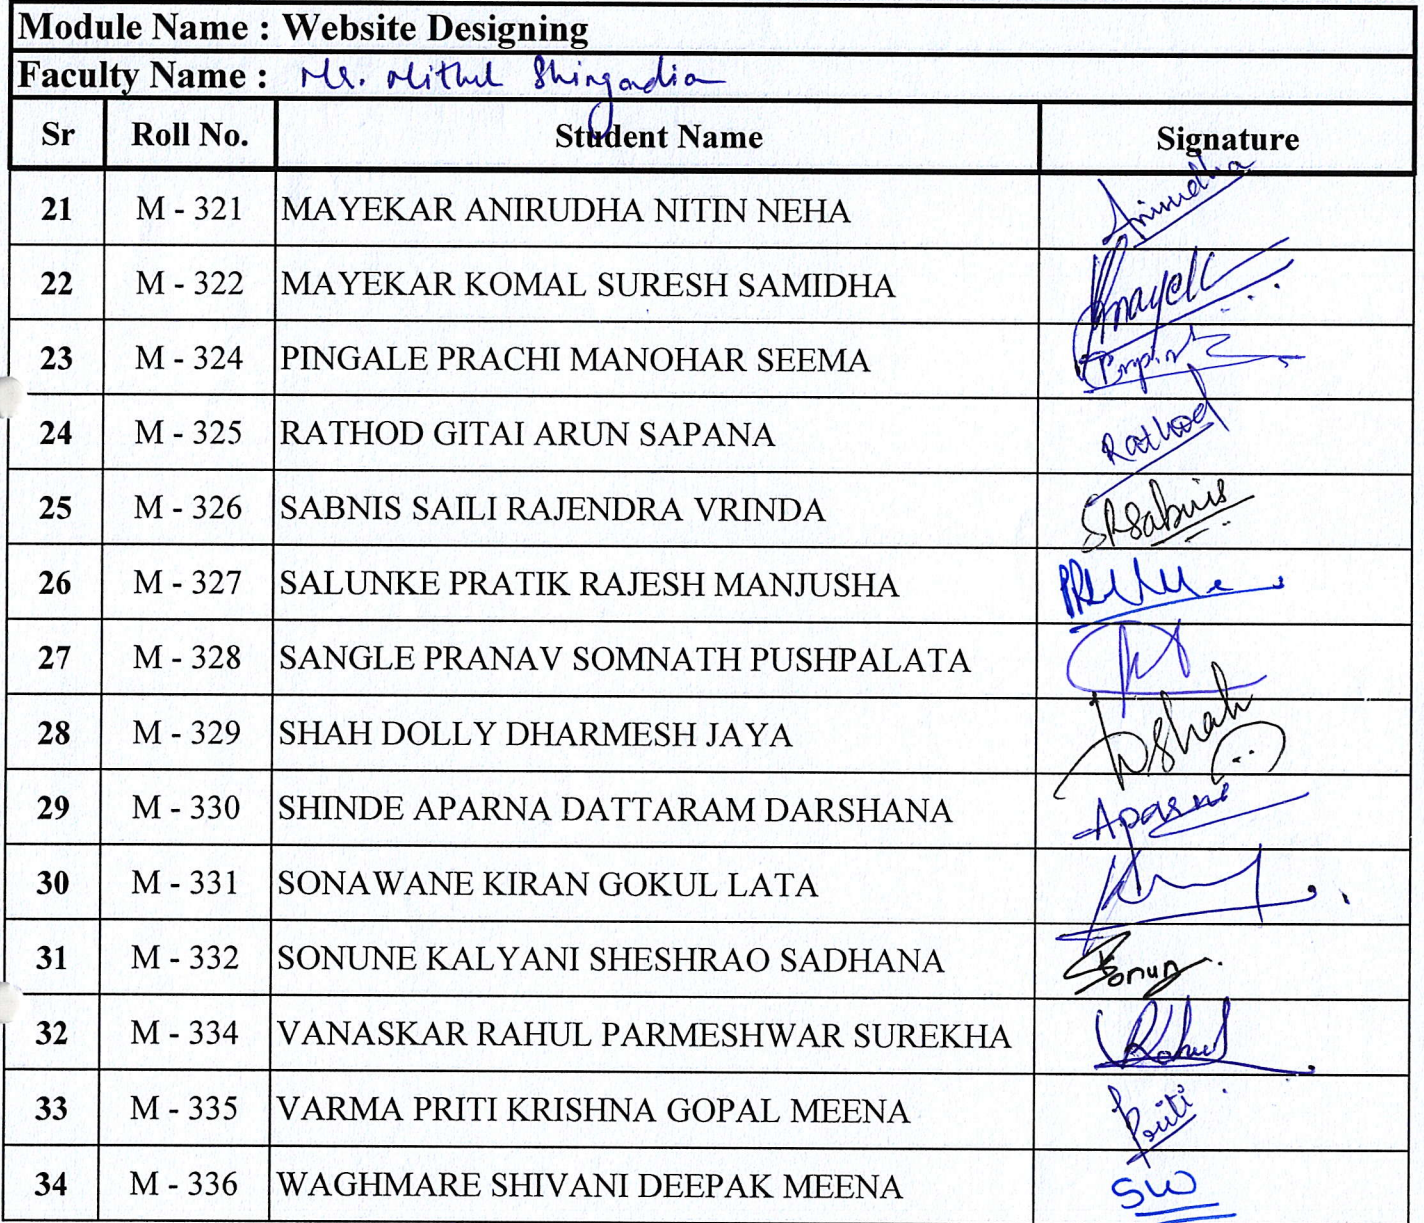 Module Name : Website Designing
Faculty Name : Mr. Mithul Shingadia
Sr Roll No. Student Name Signature
21 M - 321 MAYEKAR ANIRUDHA NITIN NEHA Anirudha
22 M - 322 MAYEKAR KOMAL SURESH SAMIDHA
23 M - 324 PINGALE PRACHI MANOHAR SEEMA
24 M - 325 RATHOD GITAI ARUN SAPANA Rathod
25 M - 326 SABNIS SAILI RAJENDRA VRINDA SRSabnis
26 M - 327 SALUNKE PRATIK RAJESH MANJUSHA
27 M - 328 SANGLE PRANAV SOMNATH PUSHPALATA
28 M - 329 SHAH DOLLY DHARMESH JAYA Dshah
29 M - 330 SHINDE APARNA DATTARAM DARSHANA Aparna
30 M - 331 SONAWANE KIRAN GOKUL LATA
31 M - 332 SONUNE KALYANI SHESHRAO SADHANA
32 M - 334 VANASKAR RAHUL PARMESHWAR SUREKHA Rahul
33 M - 335 VARMA PRITI KRISHNA GOPAL MEENA Priti
34 M - 336 WAGHMARE SHIVANI DEEPAK MEENA SW